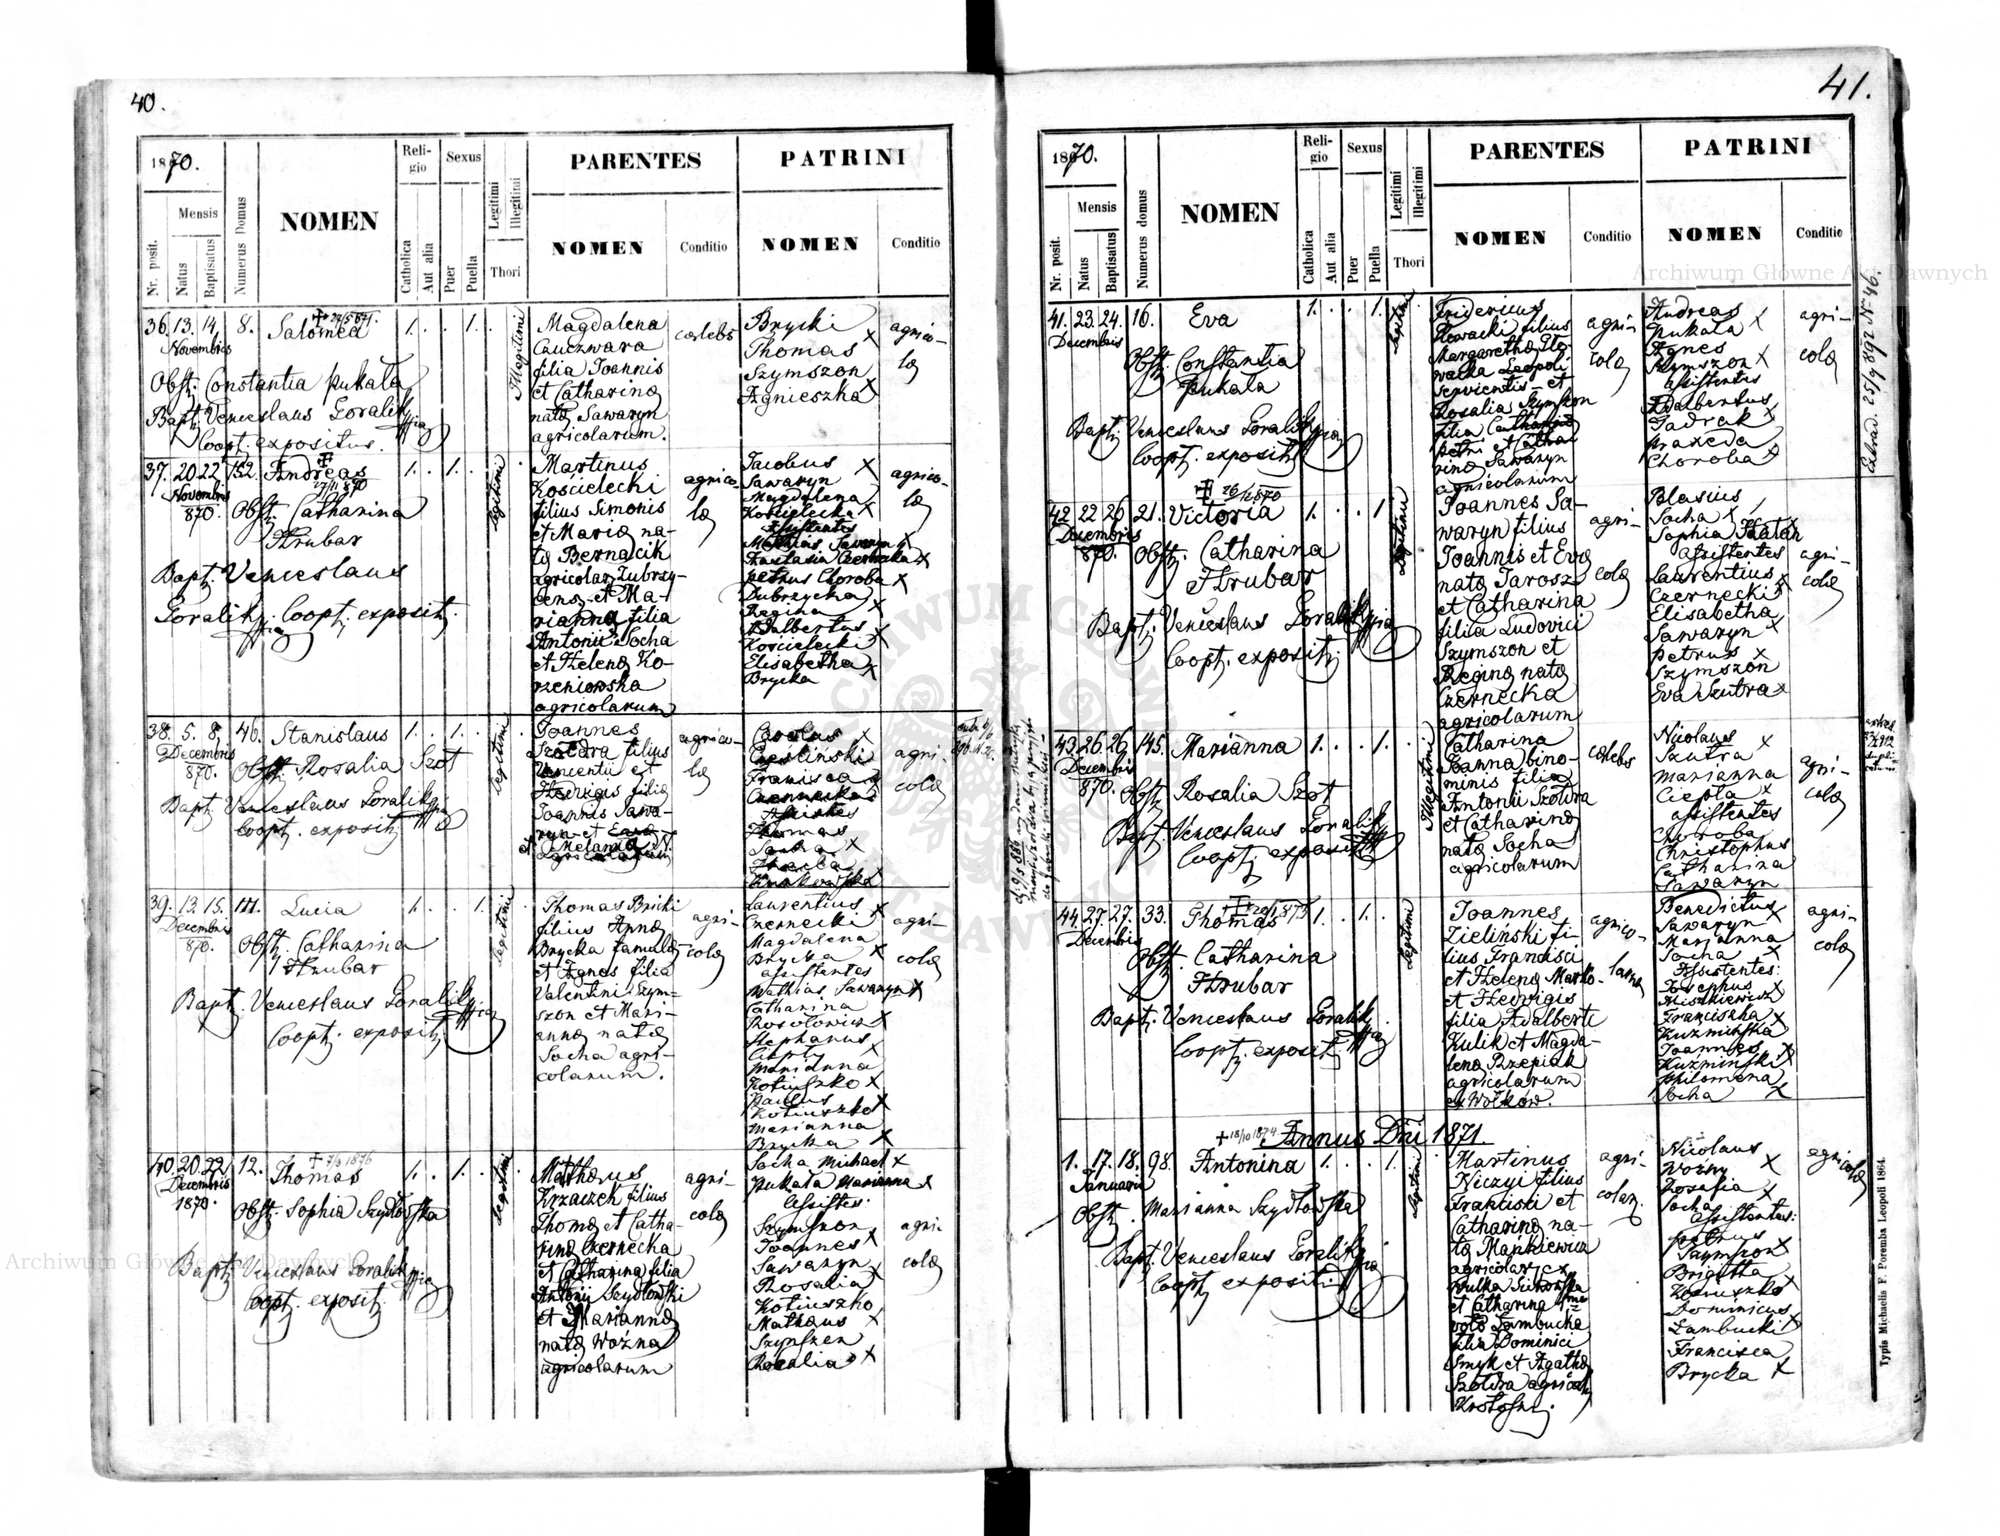 40.
1870.
Nr. posit.
Mensis
Natus
Baptisatus
Numerus Domus
NOMEN
Religio
Catholica
Aut alia
Sexus
Puer
Puella
Legitimi
Illegitimi
Thori
PARENTES
NOMEN
Conditio
PATRINI
NOMEN
Conditio
36. 13. 14. 8. Salomea 1. . . 1.
Novembris
Obst. Constantia Pukała
Bapt. Venceslaus Goralik
Coop. expositus.
Illegitimi
Magdalena
Czuczwara
filia Joannis
et Catharinæ
natæ Sawaryn
agricolarum.
cœlebs
Brycki
Thomas X
Szymszon
Agnieszka X
agrico-
læ
37. 20. 22. 152. Andreas 1. . 1. .
27/11 870
Novembris
870.
Obst. Catharina
Hrubar
Bapt. Venceslaus
Goralik Coopt. exposit.
Legitimi
Martinus
Kościelecki
filius Simonis
et Mariæ na-
tæ Bernacik
agricolar. Zubrzy-
cens. et Ma-
rianna filia
Antonii Socha
et Helenæ Ko-
rzeniowska
agricolarum
agrico-
læ
Jacobus X
Sawaryn
Magdalena
Kościelecka X
Assistentes
Mathias Sawaryn X
Anastasia Czernecka X
Petrus Choroba X
Zubrzycka
Regina X
Adalbertus X
Kościelecki
Elisabetha X
Brycka
agrico-
læ
38. 5. 8. 46. Stanislaus 1. . 1. .
Decembris
870.
Obst. Rosalia Szot
Bapt. Venceslaus Goralik
Coopt. exposit.
Legitimi
Joannes
Szoldra filius
Vincentii et
Hedvigis filia
Joannis Sawa-
ryn et
agricolarum
agrico-
læ
Carolus X
Francisca X
Czernecka
Assistentes
Thomas
Socha X
agri-
colæ
39. 13. 15. 111. Lucia 1. . . 1.
Decembris
870.
Obst. Catharina
Hrubar
Bapt. Venceslaus Goralik
Coopt. exposit.
Legitimi
Thomas Bricki
filius Annæ
Brycka famulæ
et Agnes filia
Valentini Szym-
szon et Mari-
annæ natæ
Socha agri-
colarum.
agri-
colæ
Laurentius X
Czernecki
Magdalena
Brycka X
assistentes
Mathias Sawaryn X
Catharina
Rosolowicz X
Stephanus
Ciepły X
Marianna
Kotiuszko X
Paulus
Kotiuszko X
Marianna
Brycka X
agri-
colæ
40. 20. 22. 12. Thomas 1. . 1. .
Decembris
1870.
Obst. Sophia Szydłowska
Bapt. Venceslaus Goralik
Coopt. exposit.
Legitimi
Matthæus
Krzaczek filius
Thomæ et Catha-
rinæ Czernecka
et Catharina filia
Antonii Szydłowski
et Mariannæ
natæ Woźna
agricolarum
agri-
colæ
Socha Michael X
Pukała Marianna X
Assistes:
Szymszon
Joannes X
Sawaryn
Rosalia X
Kotiuszko
Mathæus X
Szymszon
Rosalia X
agri-
colæ
41.
1870.
Nr. posit.
Mensis
Natus
Baptisatus
Numerus domus
NOMEN
Religio
Catholica
Aut alia
Sexus
Puer
Puella
Legitimi
Illegitimi
Thori
PARENTES
NOMEN
Conditio
PATRINI
NOMEN
Conditio
41. 23. 24. 16. Eva 1. . . 1.
Decembris
Obst. Constantia
Pukała
Bapt. Venceslaus Goralik
Coopt. exposit.
Legitimi
Fridericus
Nowacki filius
Margarethæ Glo-
wacka Leopoli
servientis et
Rosalia Szymszon
filia Catharinæ
Petri et Catha
rinæ Sawaryn
agricolarum
agri-
colæ
Andreas
Pukała X
Agnes
Szymszon X
assistentes
Adalbertus
Jadrak X
Praxeda
Choroba X
agri-
colæ
Extrad. 25/9 892 N 46.
42. 22. 26. 21. Victoria 1. . . 1
26/12 870
Decembris
870.
Obst. Catharina
Hrubar
Bapt. Venceslaus Goralik
Coopt. exposit.
Legitimi
Joannes Sa-
waryn filius
Joannis et Evæ
natæ Jarosz
et Catharina
filia Ludovici
Szymszon et
Reginæ natæ
Czernecka
agricolarum
agri-
colæ
Blasius
Socha X
Sophia Hałań X
assistentes
Laurentius
Czernecki X
Elisabetha
Sawaryn X
Petrus X
Szymszon
Eva Szutra X
agri-
colæ
43. 26. 26. 145. Marianna 1. . . 1.
Decembris
870.
Obst. Rosalia Szot
Bapt. Venceslaus Goralik
Coopt. exposit.
Illegitimi
Catharina
Joanna bino-
minis filia
Antonii Szoldra
et Catharinæ
natæ Socha
agricolarum
cœlebs
Nicolaus
Szutra X
Marianna
Ciepła X
assistentes
Choroba
Christophus
Catharina
Sawaryn
agri-
colæ
44. 27. 27. 33. Thomas 1. . 1. .
Decembris
Obst. Catharina
Hrubar
Bapt. Venceslaus Goralik
Coopt. exposit.
Legitimi
Joannes
Zieliński fi-
lius Francisci
et Helenæ Marko-
et Hedvigis
filia Adalberti
Kulik et Magda-
lenæ Rzepiak
agricolarum
ex Wołków.
agrico-
larum
Benedictus
Sawaryn X
Marianna
Socha X
Assistentes:
Josephus X
Miszkiewicz
Franciszka X
Kuzmińska
Joannes X
Kuzmiński X
Philomena
Socha X
agri-
colæ
Annus Dni 1871
18/10 1874
1. 17. 18. 98. Antonina 1. . . 1.
Januarii
Obst. Marianna Szydłowska
Bapt. Venceslaus Goralik
Coopt. exposit.
Legitimi
Martinus
Niczyi filius
Franciski et
Catharinæ na-
tæ Mankiewicz
agricolar. ex
Wulka Sichowska
et Catharina 1mo
voto Zambucka
filia Dominici
Smyk et Agathæ
Szoldra agricol.
agri-
colar.
Nicolaus
Woźny X
Rosalia X
Socha
assistentes:
Petrus
Szymszon X
Brigitta
Kotiuszko X
Dominicus
Zambucki X
Francisca
Brycka X
agricolæ
Typis Michaelis F. Poremba Leopoli 1864.
Archiwum Główne Akt Dawnych
Archiwum Główne Akt Dawnych
ARCHIWUM GŁÓWNE AKT DAWNYCH